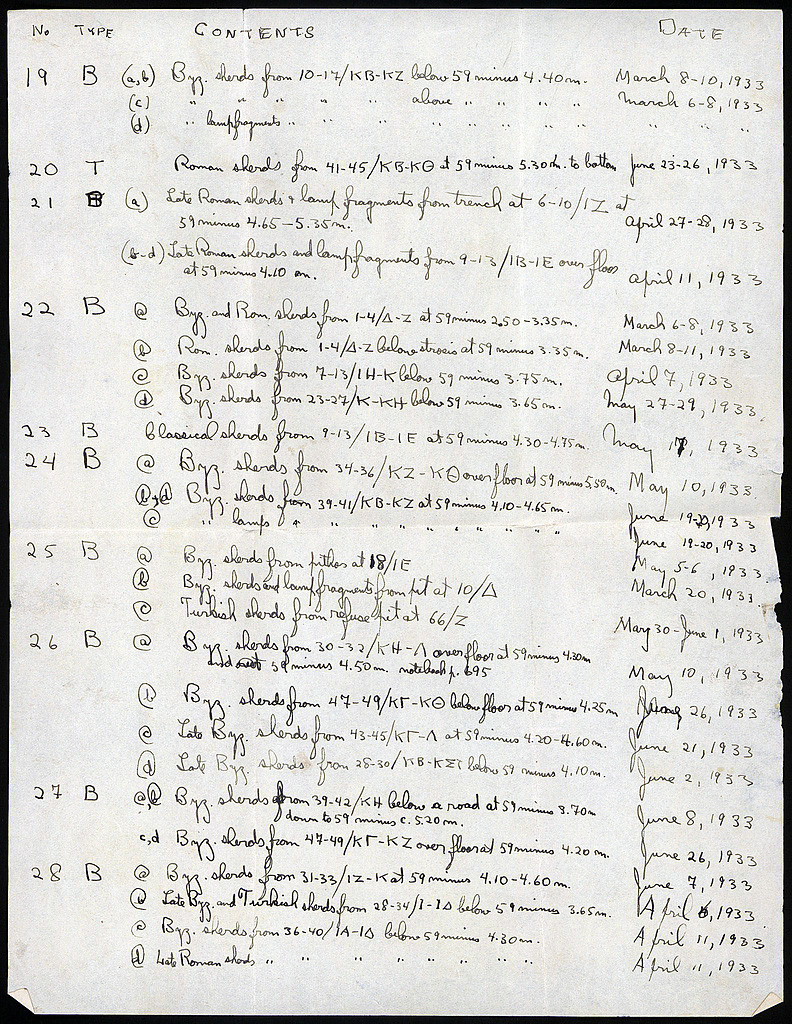 No TYPE CONTENTS DATE
19 B (a,b) Byz. sherds from 10-17/ΚΒ-ΚΖ below 59 minus 4.40 m. March 8-10, 1933
(c) " " " " above " " " " March 6-8, 1933
(d) " lamp fragments " " " " " " " " "
20 T Roman sherds from 41-45/ΚΒ-ΚΘ at 59 minus 5.30 m. to bottom June 23-26, 1933
21 B (a) Late Roman sherds & lamp fragments from trench at 6-10/ΙΖ at
59 minus 4.65-5.35 m. April 27-28, 1933
(b-d) Late Roman sherds and lamp fragments from 9-13/ΙΒ-ΙΕ over floor
at 59 minus 4.10 m. April 11, 1933
22 B (a) Byz. and Rom. sherds from 1-4/Δ-Ζ at 59 minus 2.50-3.35 m. March 6-8, 1933
(b) Rom. sherds from 1-4/Δ-Ζ below strosis at 59 minus 3.35 m. March 8-11, 1933
(c) Byz. sherds from 7-13/ΙΗ-Κ below 59 minus 3.75 m. April 7, 1933
(d) Byz. sherds from 23-27/Κ-ΚΗ below 59 minus 3.65 m. May 27-29, 1933.
23 B Classical sherds from 9-13/ΙΒ-ΙΕ at 59 minus 4.30-4.75 m. May 17, 1933
24 B (a) Byz. sherds from 34-36/ΚΖ-ΚΘ over floor at 59 minus 5.50 m. May 10, 1933
(b,d) Byz. sherds from 39-41/ΚΒ-ΚΖ at 59 minus 4.10-4.65 m. June 19-20, 1933
(c) " lamps " " " " " " " " June 19-20, 1933
25 B (a) Byz. sherds from pithos at 18/ΙΕ May 5-6, 1933
(b) Byz. sherds and lamp fragments from pit at 10/Δ March 20, 1933.
(c) Turkish sherds from refuse pit at 66/Ζ May 30-June 1, 1933
26 B (a) Byz. sherds from 30-32/ΚΗ-Λ over floor at 59 minus 4.30 m
and 59 minus 4.50 m. notebook p. 695 May 10, 1933
(b) Byz. sherds from 47-49/ΚΓ-ΚΘ below floor at 59 minus 4.25 m 26, 1933
(c) Late Byz. sherds from 43-45/ΚΓ-Λ at 59 minus 4.20-4.60 m. June 21, 1933
(d) Late Byz. sherds from 28-30/ΚΒ-ΚΣΤ below 59 minus 4.10 m. June 2, 1933
27 B (a,b) Byz. sherds from 39-42/ΚΗ below a road at 59 minus 3.70 m
down to 59 minus c. 5.20 m. June 8, 1933
c,d Byz. sherds from 47-49/ΚΓ-ΚΖ over floor at 59 minus 4.20 m. June 26, 1933
28 B (a) Byz. sherds from 31-33/ΙΖ-Κ at 59 minus 4.10-4.60 m. June 7, 1933
(b) Late Byz. and Turkish sherds from 28-34/Ι-ΙΔ below 59 minus 3.65 m. April 6, 1933
(c) Byz. sherds from 36-40/ΙΑ-ΙΔ below 59 minus 4.30 m. April 11, 1933
(d) Late Roman sherds " " " " " " " " April 11, 1933